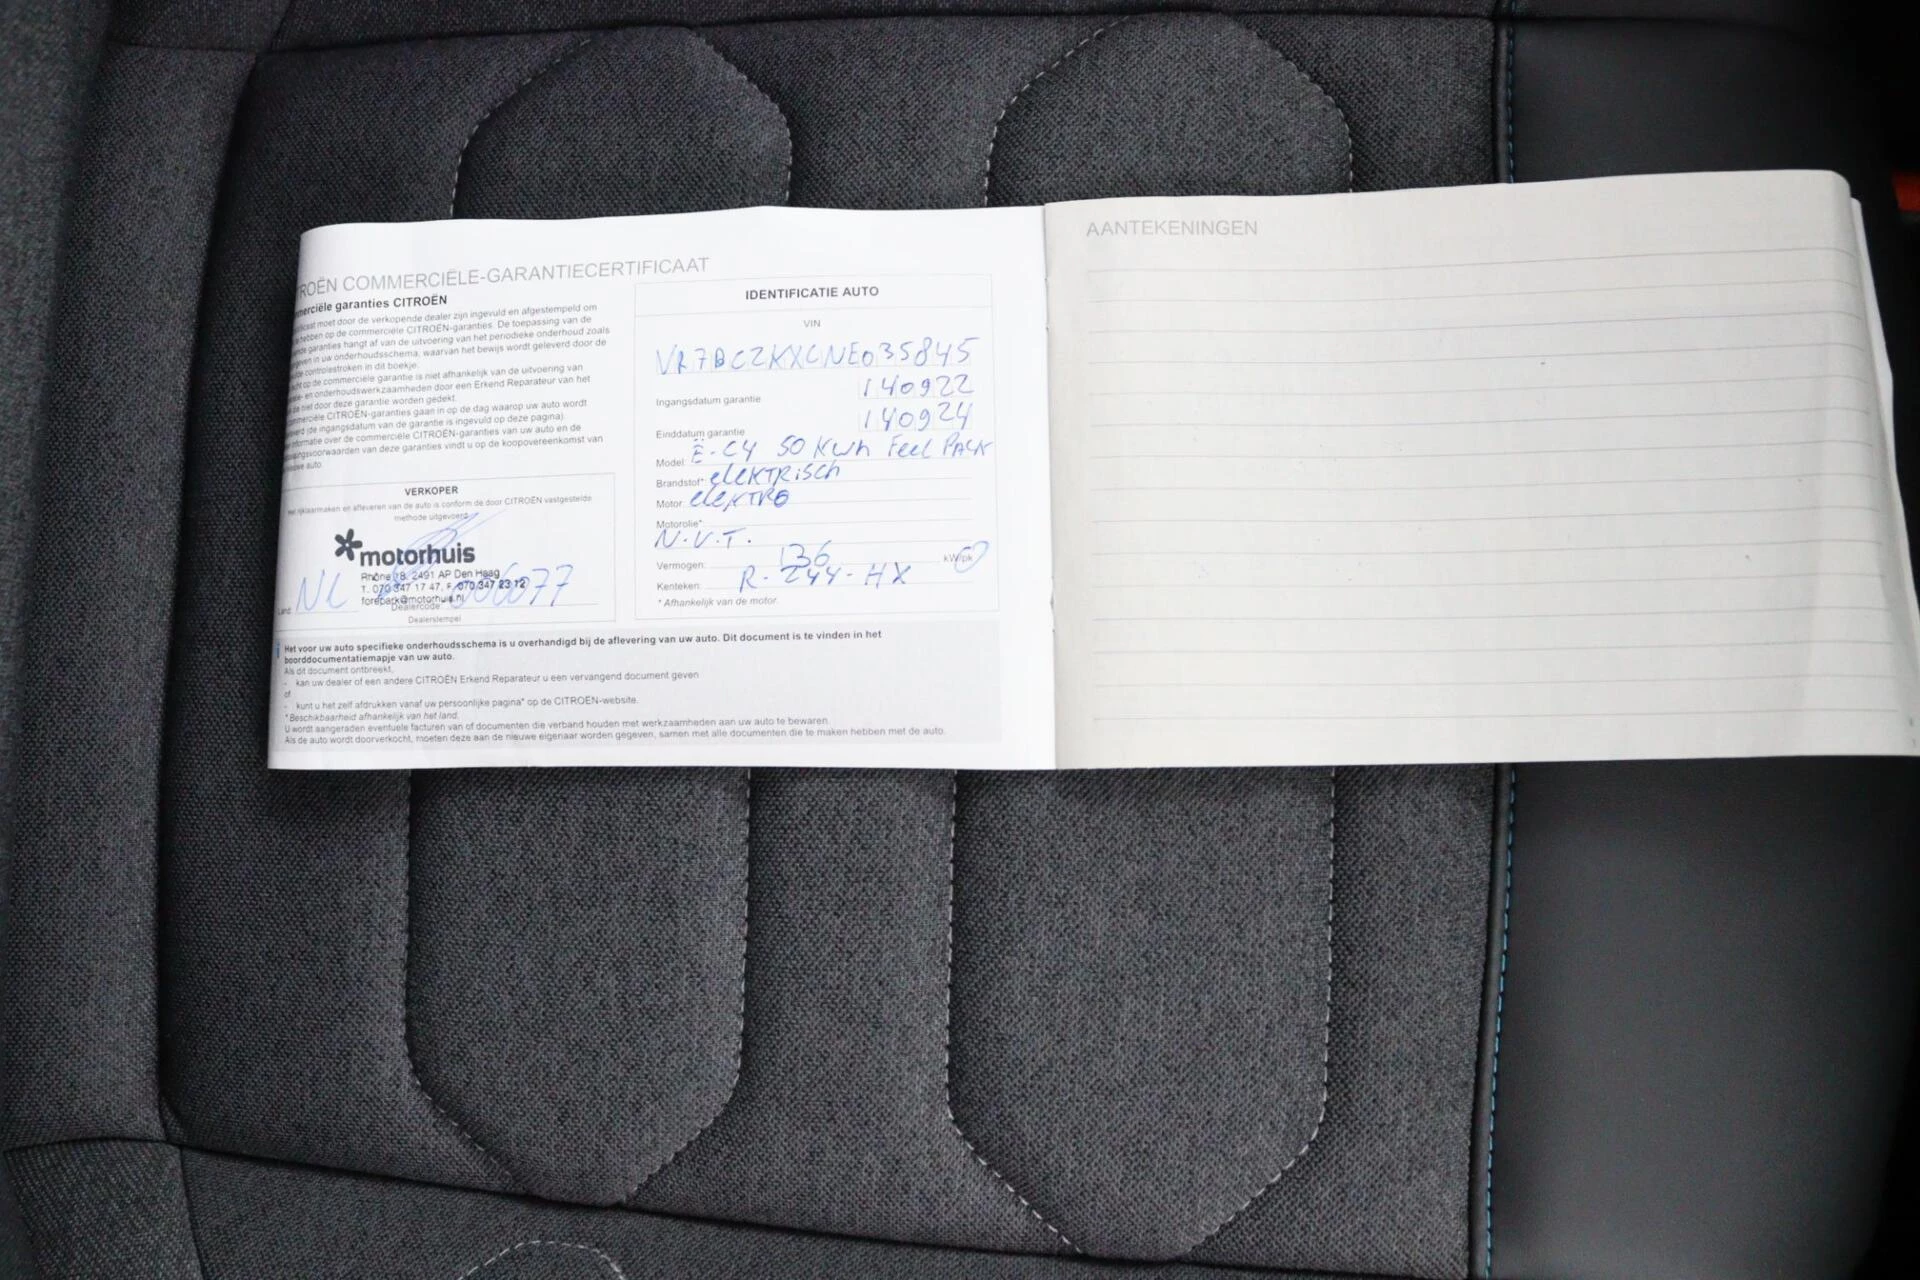 ROËN COMMERCIËLE-GARANTIECERTIFICAAT
merciële garanties CITROËN
ficaat moet door de verkopende dealer zijn ingevuld en afgestempeld om
hebben op de commerciële CITROËN-garanties. De toepassing van de
garanties hangt af van de uitvoering van het periodieke onderhoud zoals
in uw onderhoudsschema, waarvan het bewijs wordt geleverd door de
controlestroken in dit boekje.
op de commerciële garantie is niet afhankelijk van de uitvoering van
en onderhoudswerkzaamheden door een Erkend Reparateur van het
die niet door deze garantie worden gedekt.
commerciële CITROËN-garanties gaan in op de dag waarop uw auto wordt
(de ingangsdatum van de garantie is ingevuld op deze pagina).
informatie over de commerciële CITROËN-garanties van uw auto en de
voorwaarden van deze garanties vindt u op de koopovereenkomst van
auto.
VERKOPER
Het rijklaarmaken en afleveren van de auto is conform de door CITROËN vastgestelde
methode uitgevoerd.
motorhuis
Rhône 18, 2491 AP Den Haag
T. 070 347 17 47, F. 070 347 23 12
forepark@motorhuis.nl
Land: NL Dealercode: 006077
Dealerstempel
IDENTIFICATIE AUTO
VIN
VR7BCZKXCNE035845
Ingangsdatum garantie 140922
Einddatum garantie 140924
Model: Ë-C4 50 KWh Feel PACK
Brandstof*: elektrisch
Motor: elektro
Motorolie*:
N.V.T.
Vermogen: 136 kW/pk
Kenteken: R-244-HX
* Afhankelijk van de motor.
i Het voor uw auto specifieke onderhoudsschema is u overhandigd bij de aflevering van uw auto. Dit document is te vinden in het
boorddocumentatiemapje van uw auto.
Als dit document ontbreekt,
- kan uw dealer of een andere CITROËN Erkend Reparateur u een vervangend document geven
of
- kunt u het zelf afdrukken vanaf uw persoonlijke pagina* op de CITROËN-website.
* Beschikbaarheid afhankelijk van het land.
U wordt aangeraden eventuele facturen van of documenten die verband houden met werkzaamheden aan uw auto te bewaren.
Als de auto wordt doorverkocht, moeten deze aan de nieuwe eigenaar worden gegeven, samen met alle documenten die te maken hebben met de auto.
AANTEKENINGEN